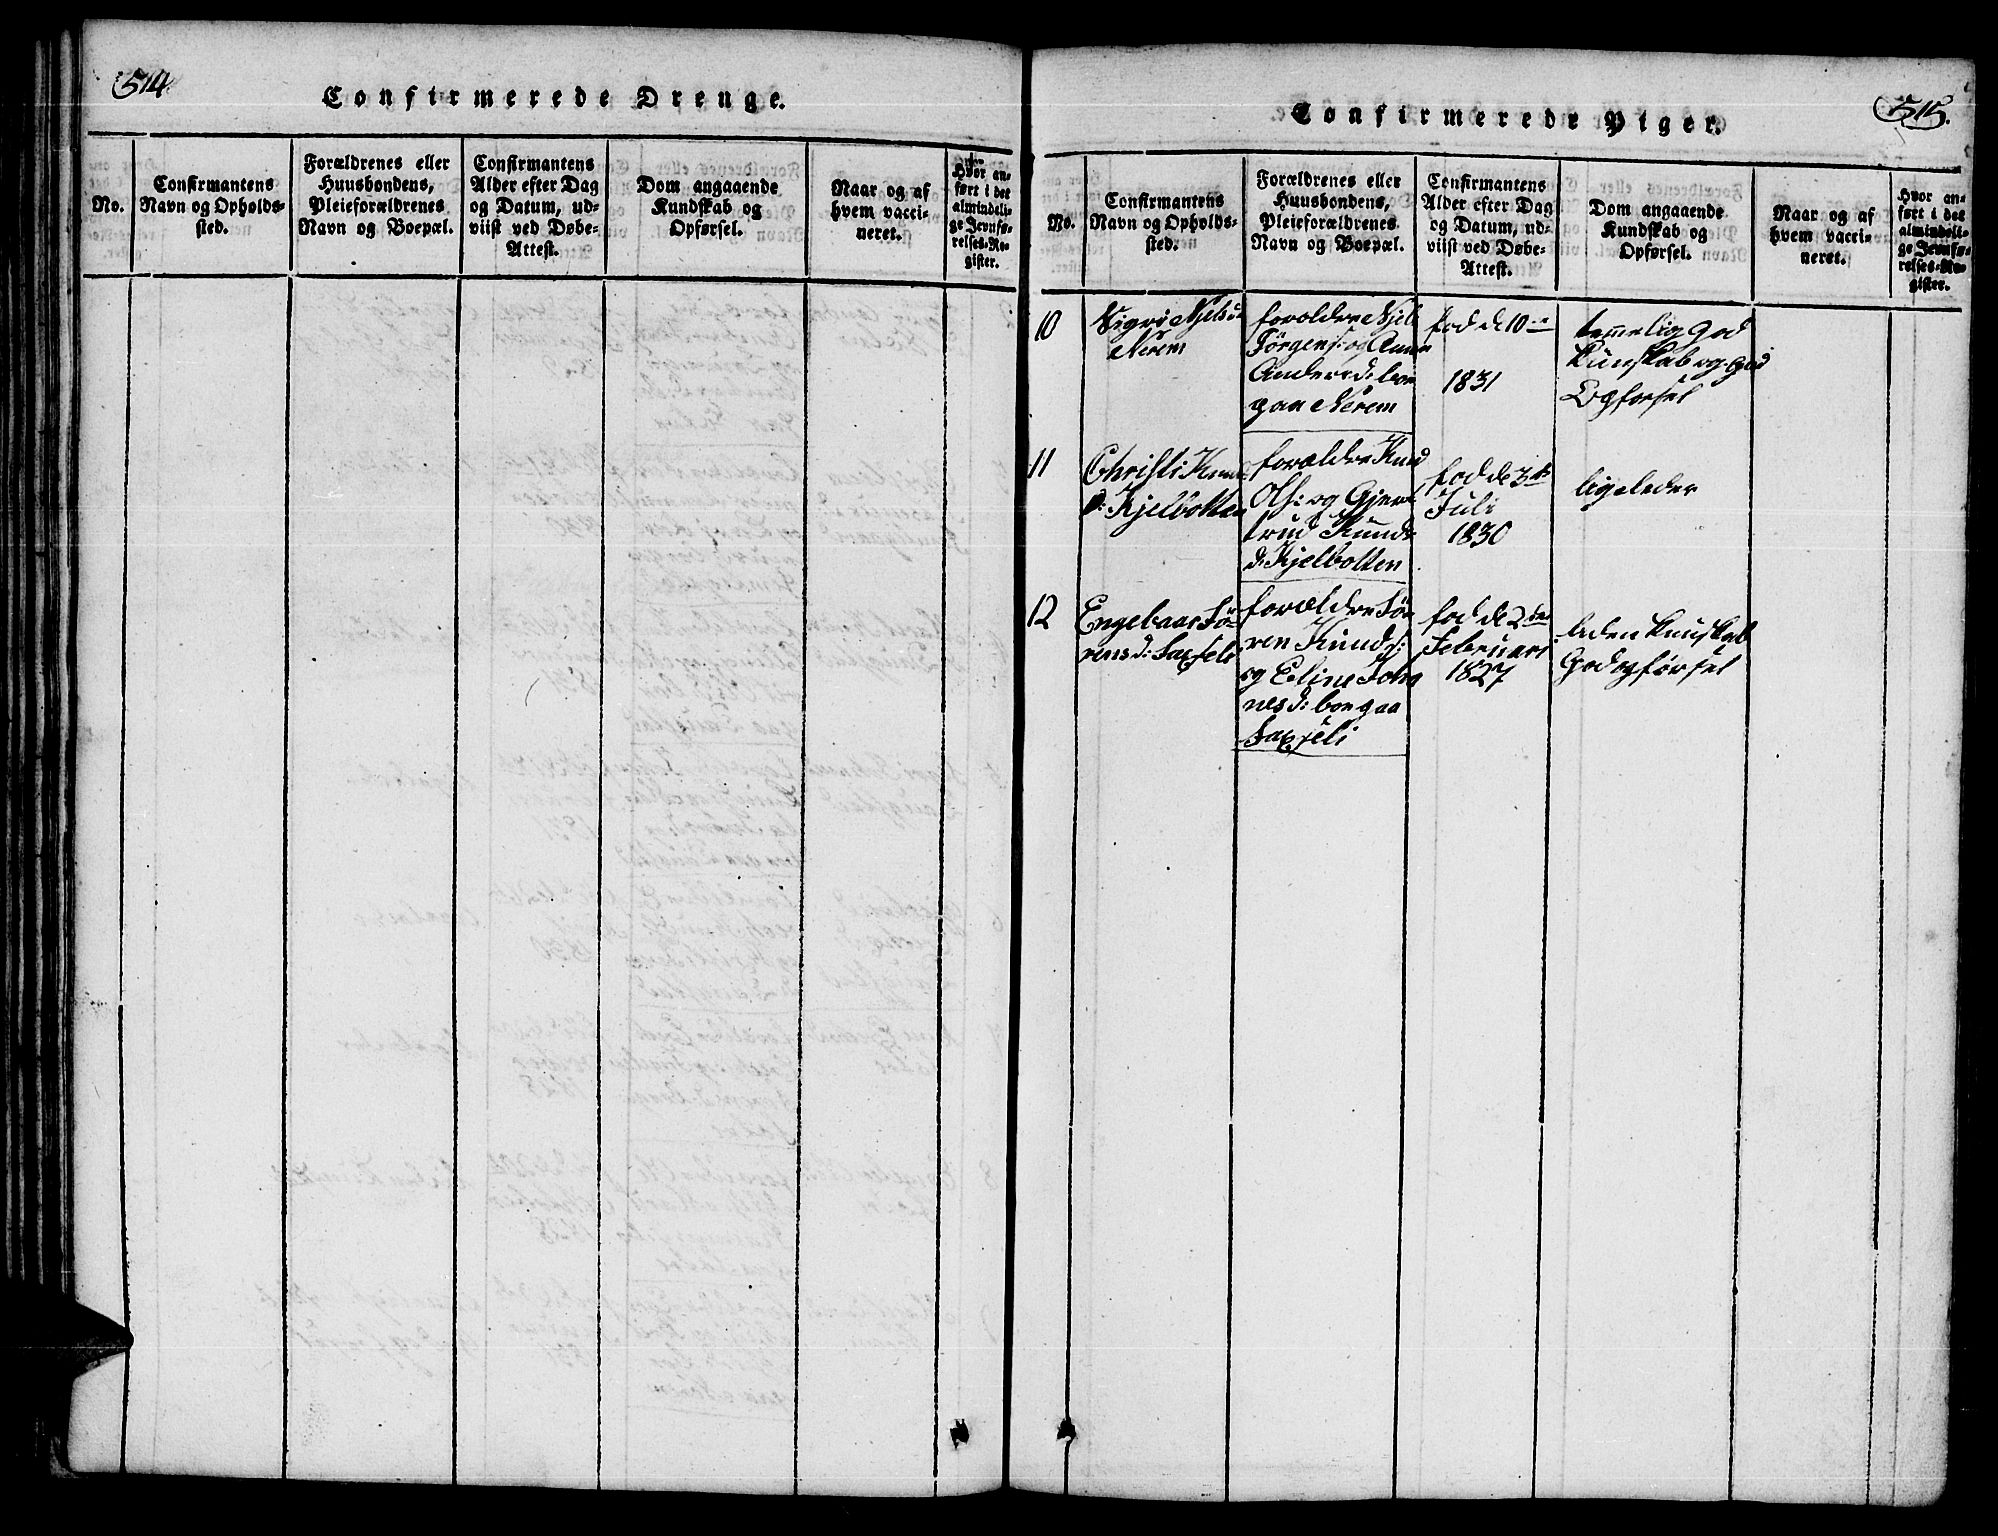 514.
Confirmerede Drenge.
No.
Confirmantens
Navn og Opholds-
sted.
Forældrenes eller
Huusbondens,
Pleieforældrenes
Navn og Boepæl.
Confirmantens
Alder efter Dag
og Datum, ud-
viist ved Døbe-
Attest.
Dom angaaende
Kundskab og
Opførsel.
Naar og af
hvem vacci-
neret.
Hvor an-
ført i det
almindeli-
ge Jevnfø-
relses-Re-
gister.
515.
Confirmerede Piger.
No.
Confirmantens
Navn og Opholds-
sted.
Forældrenes eller
Huusbondens,
Pleieforældrenes
Navn og Boepæl.
Confirmantens
Alder efter Dag
og Datum, ud-
viist ved Døbe-
Attest.
Dom angaaende
Kundskab og
Opførsel.
Naar og af
hvem vacci-
neret.
Hvor an-
ført i det
almindeli-
ge Jevnfø-
relses-Re-
gister.
10
Sigri
Nerem
foroldre
Jörgens: og
Anders d: boe
paa Nerem
fod de 10
1831
temelig God
Kunskab og God
Opforsel
11
Christi Knud
d: Kjelbotten
forældre Knud
Ols: og Gjer
trud Knuds
d: Kjelbotten
fod de 3
Juli
1830
ligeleder
12
Engebaar Sö
rens d:
forældre Sö
ren Knuds:
og Eline Joha
nes d: boe paa
fod de 2den
Februari
1827
liden Kunskab
God opförsel